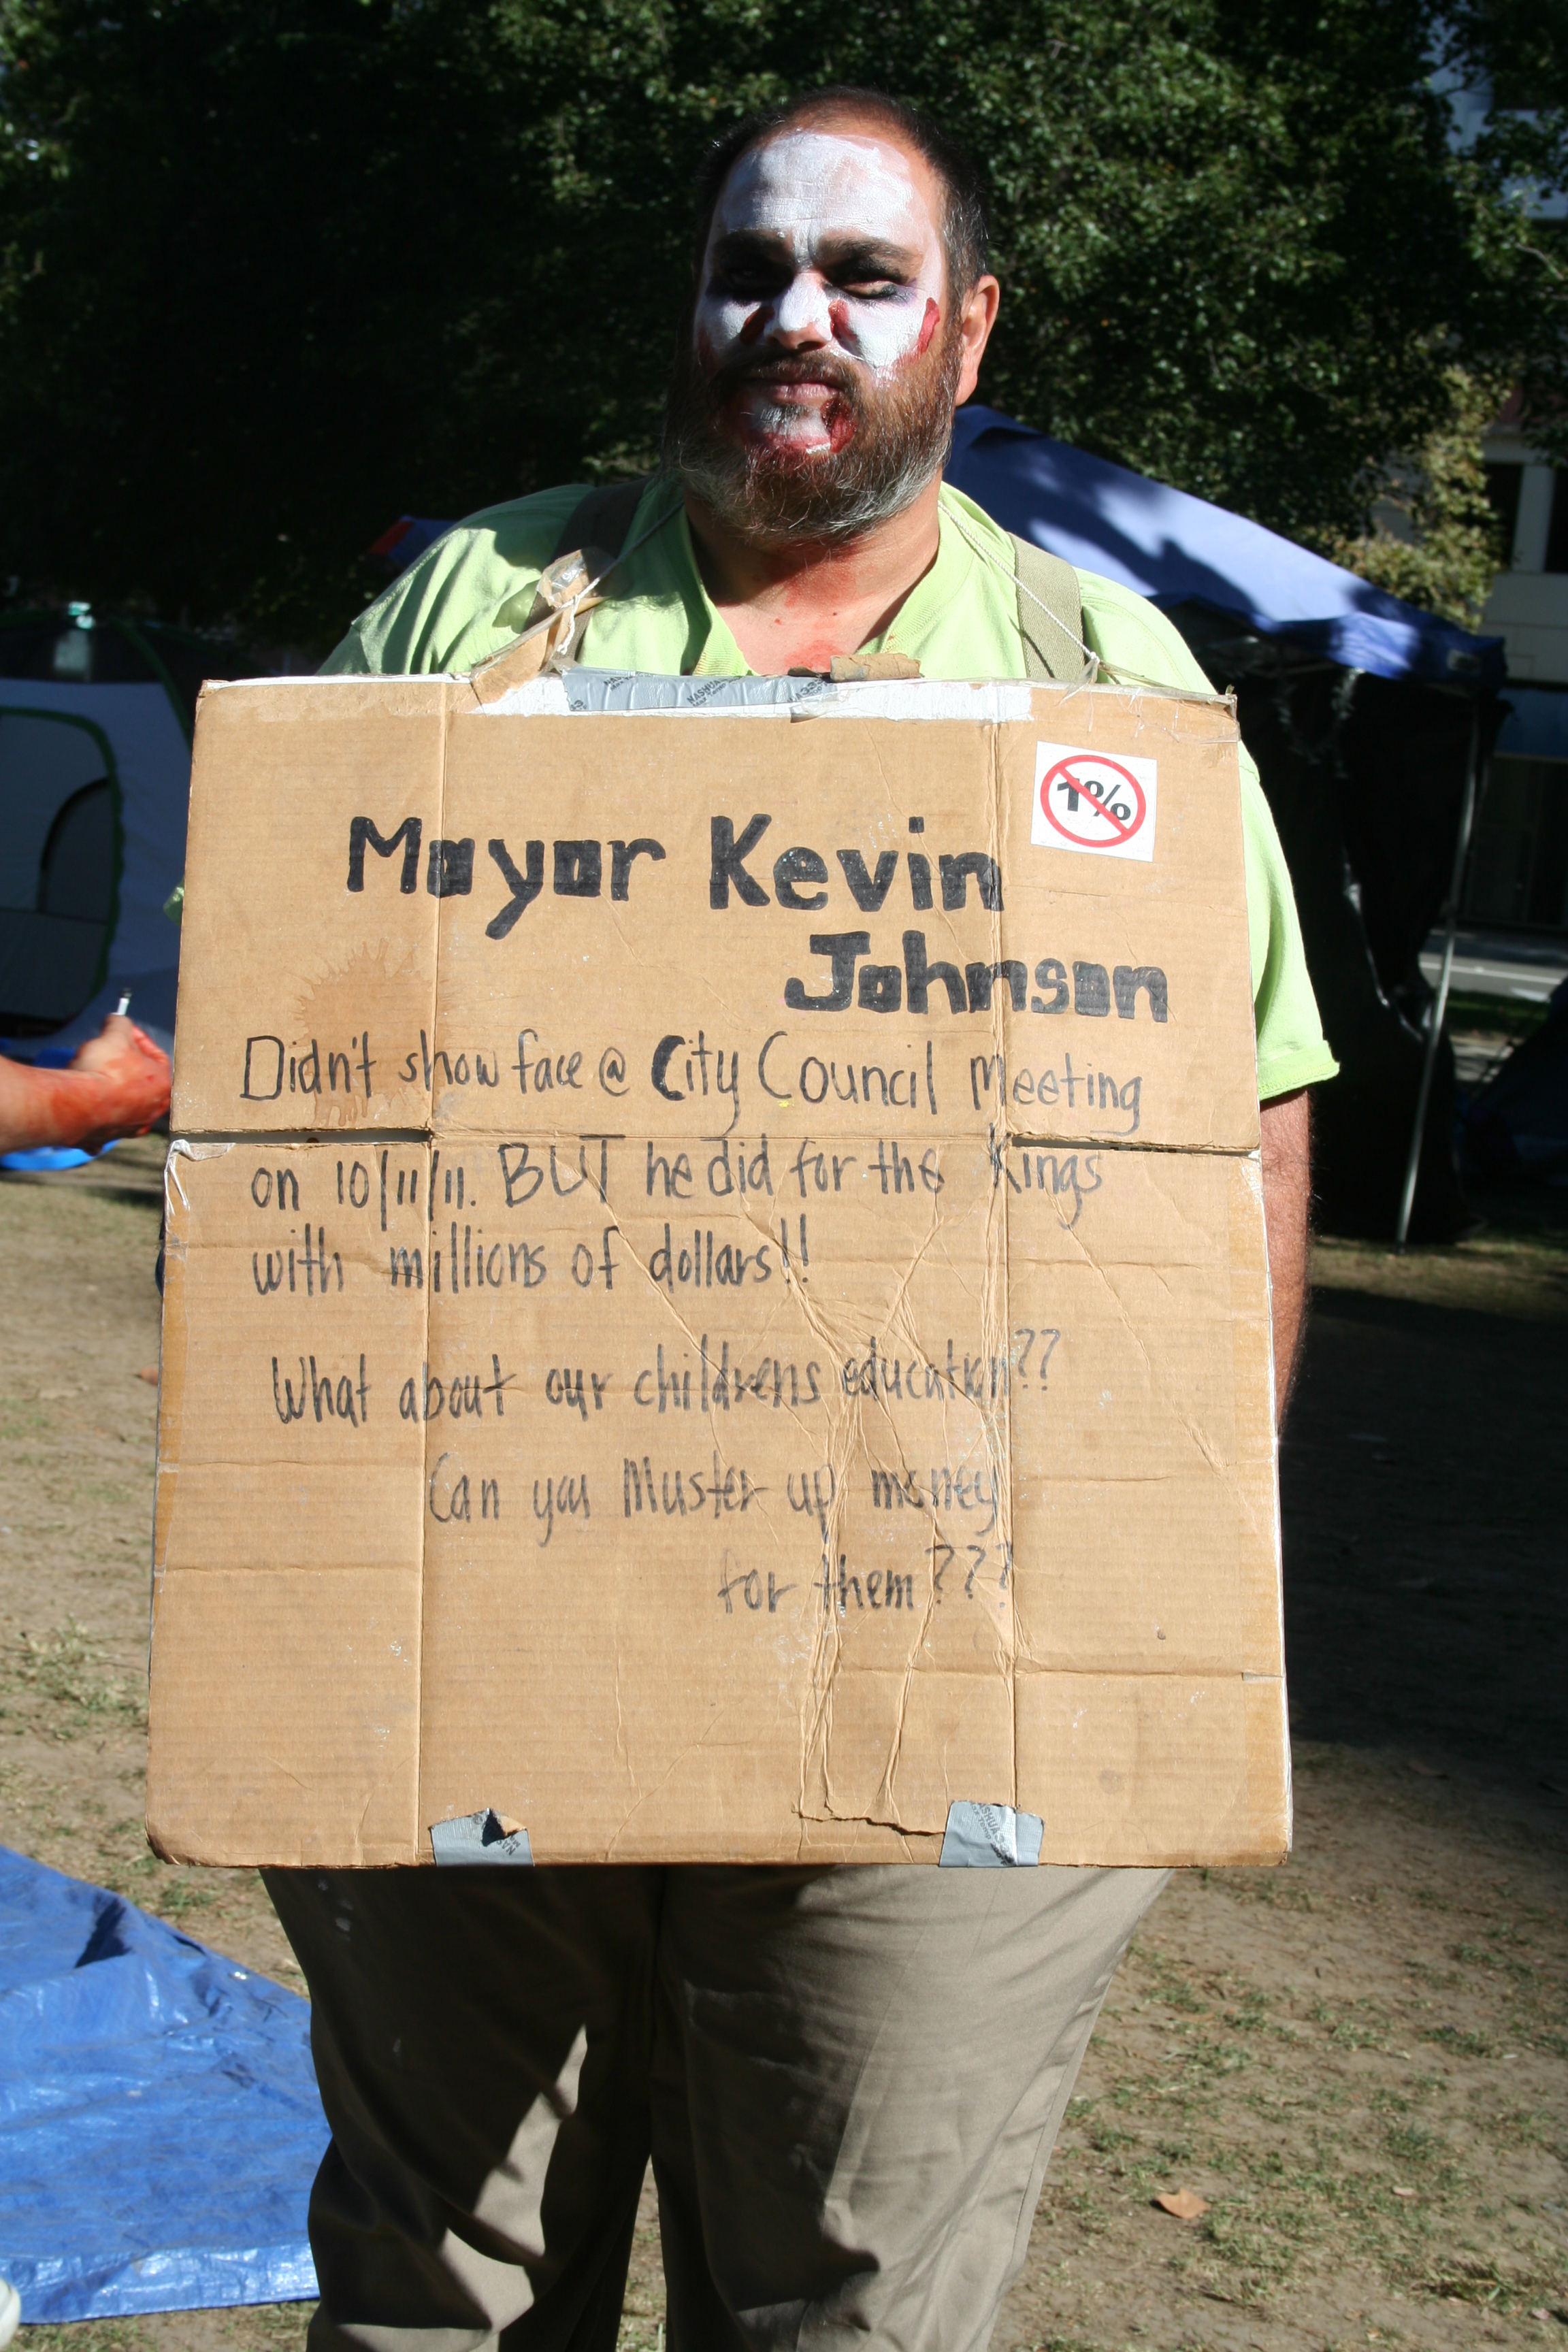 NASHUA
1%
Mayor Kevin
Johnson
Didn't show face @ City Council Meeting
on 10/11/11. BUT he did for the Kings
with millions of dollars!!
What about our childrens education??
Can you Muster up money
for them???